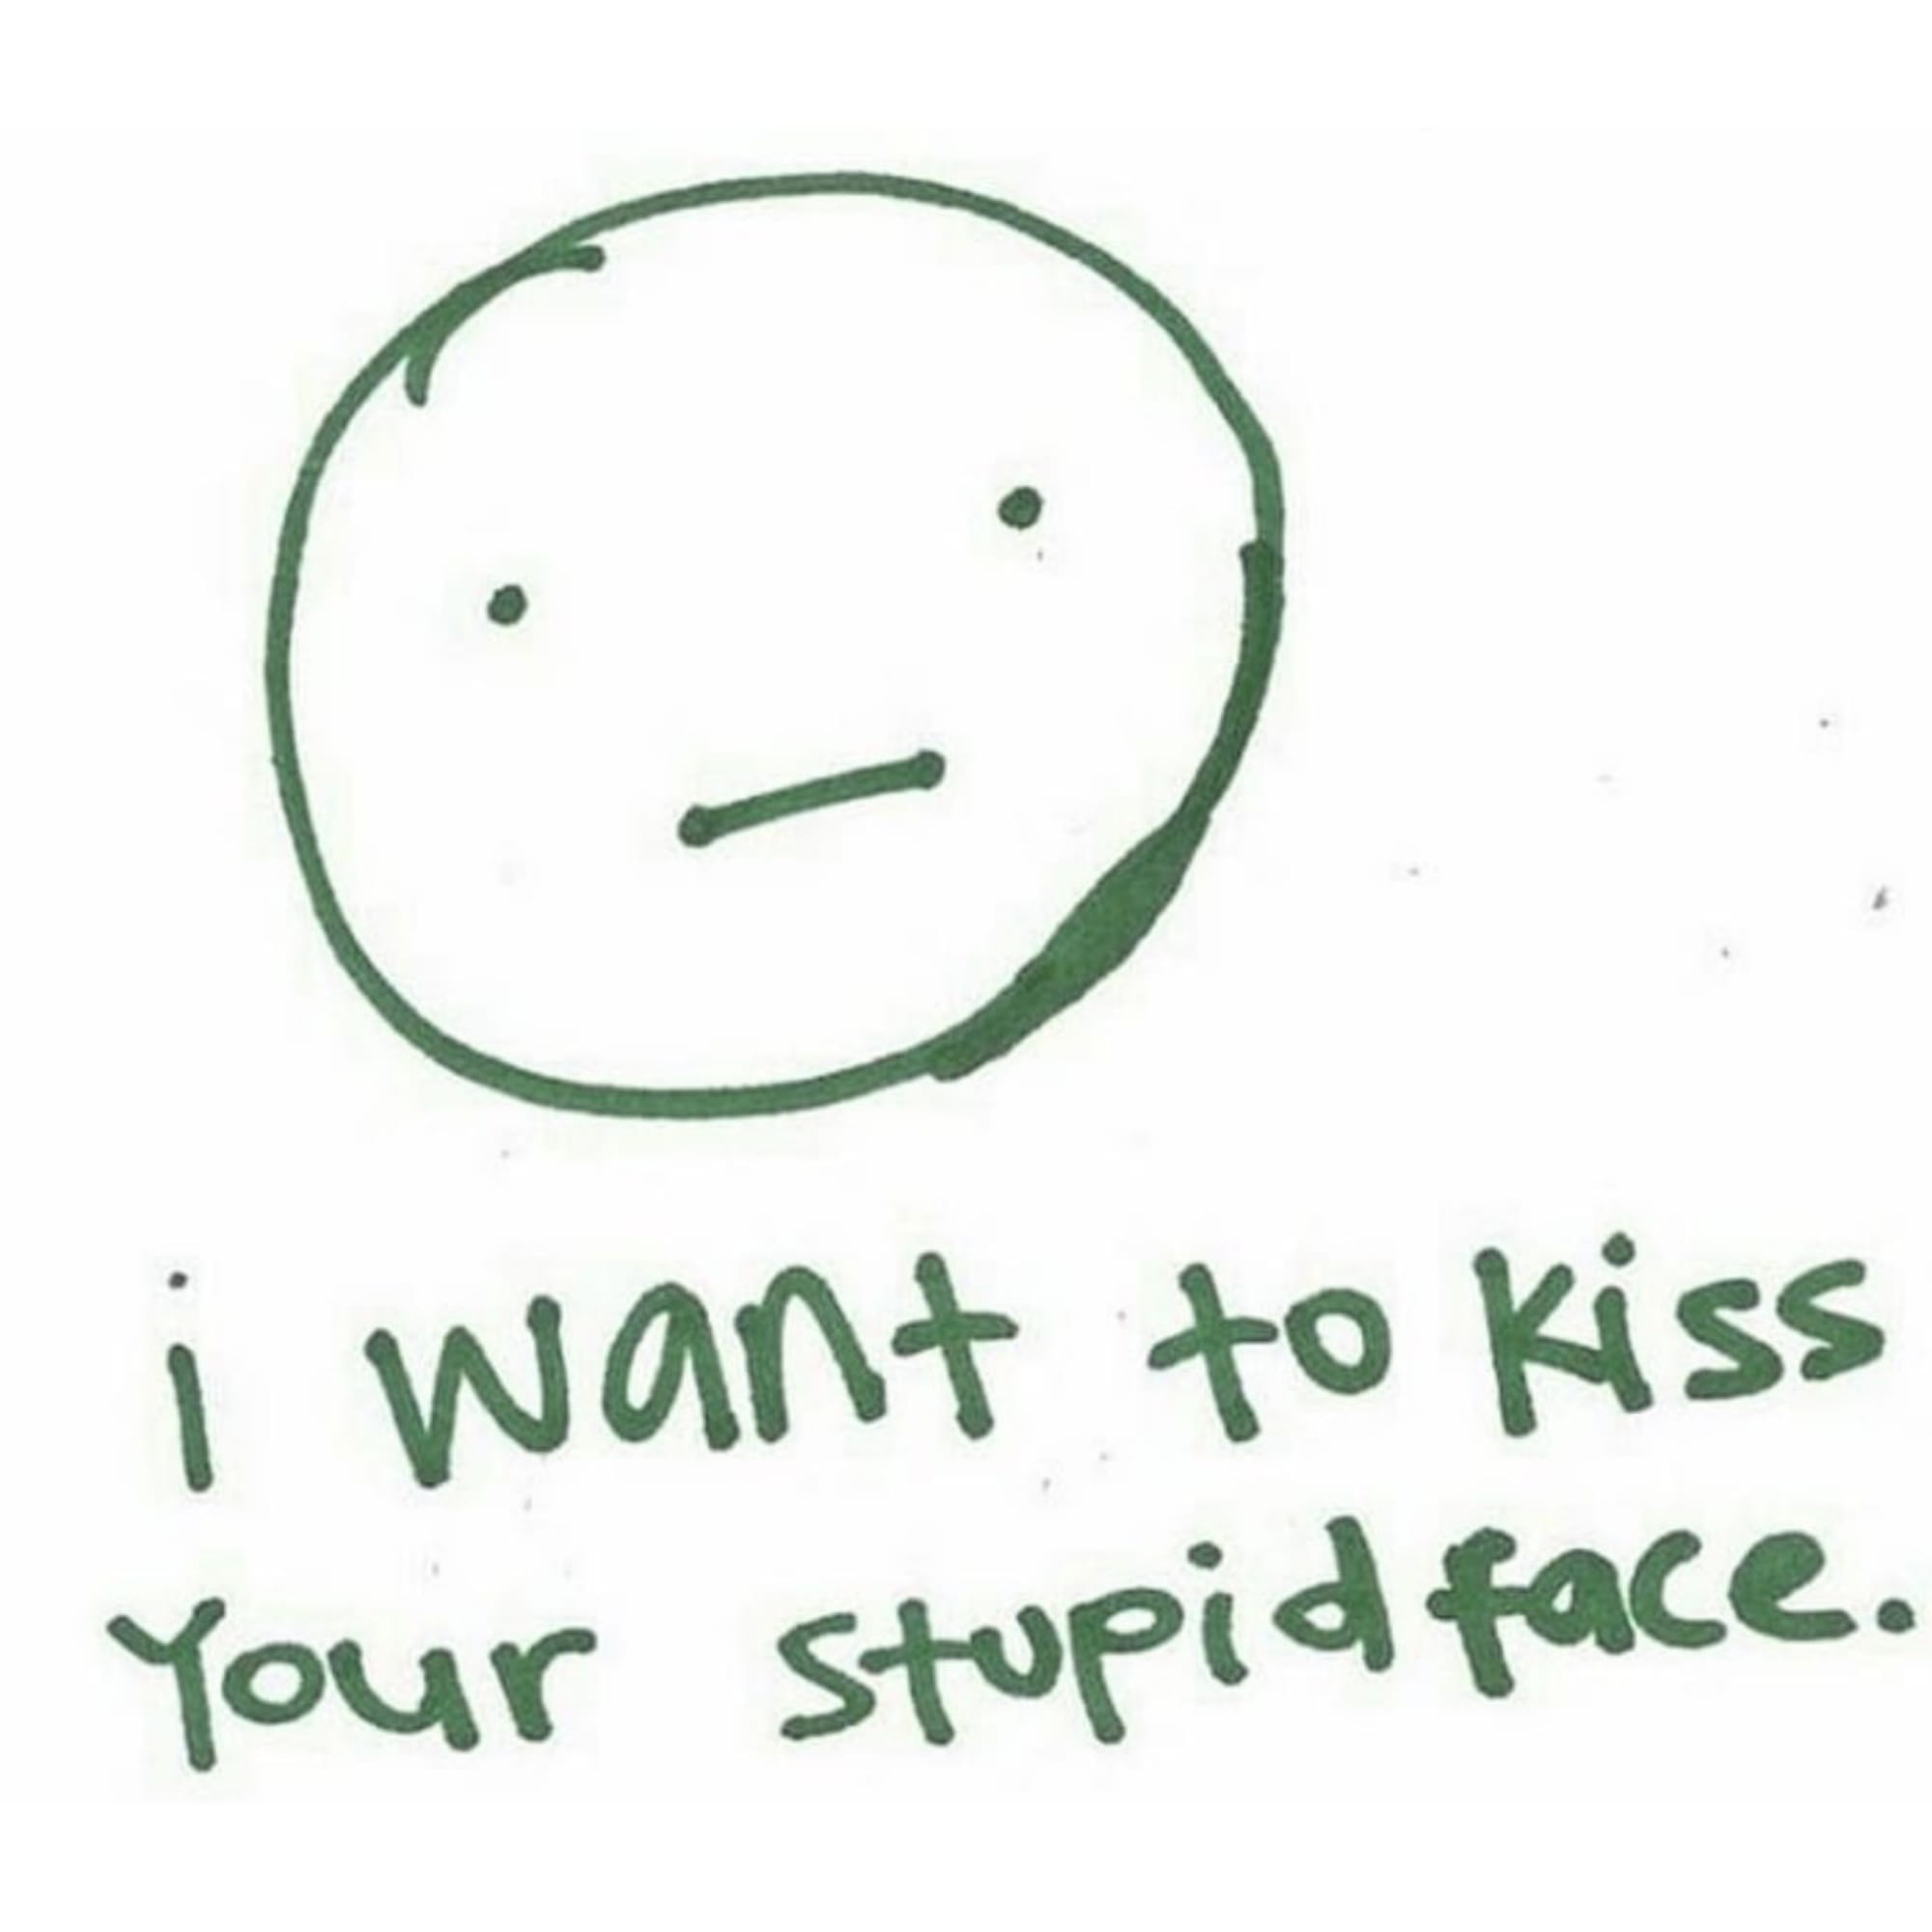 i want to kiss
Your stupid face.